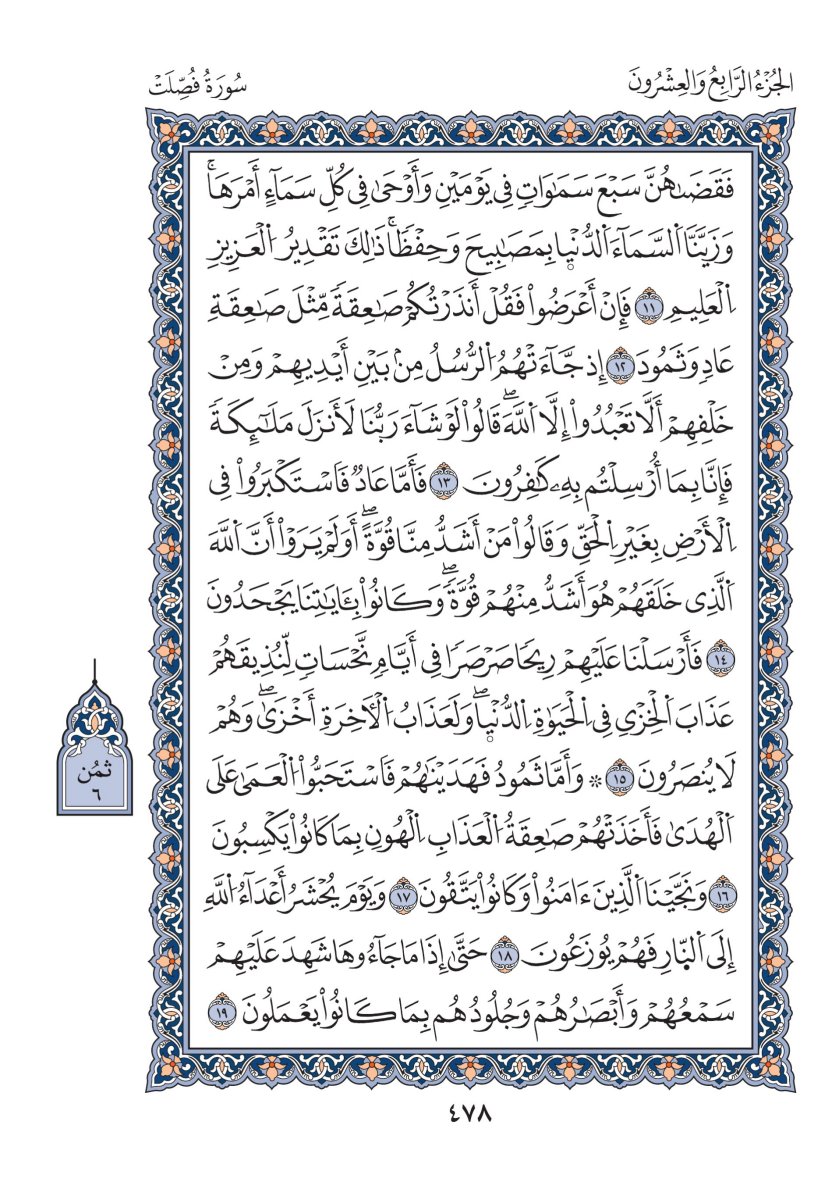 الجُزْءُ الرَّابِعُ وَالعِشْرُونَ
سُورَةُ فُصِّلَتْ
فَقَضَىٰهُنَّ سَبْعَ سَمَٰوَاتٍ فِي يَوْمَيْنِ وَأَوْحَىٰ فِي كُلِّ سَمَآءٍ أَمْرَهَاۚ
وَزَيَّنَّا اَ۬لسَّمَآءَ اَ۬لدُّنْي۪ا بِمَصَٰبِيحَ وَحِفْظاٗۚ ذَٰلِكَ تَقْدِيرُ اُ۬لْعَزِيزِ
اِ۬لْعَلِيمِ ١١ فَإِنْ أَعْرَضُواْ فَقُلْ أَنذَرْتُكُمْ صَٰعِقَةٗ مِّثْلَ صَٰعِقَةِ
عَادٖ وَثَمُودَ ١٢ إِذ جَّآءَتْهُمُ اُ۬لرُّسُلُ مِنۢ بَيْنِ أَيْدِيهِمْ وَمِنْ
خَلْفِهِمْ أَلَّا تَعْبُدُواْ إِلَّا اَ۬للَّهَۖ قَالُواْ لَوْ شَآءَ رَبُّنَا لَأَنزَلَ مَلَٰٓئِكَةٗ
فَإِنَّا بِمَا أُرْسِلْتُم بِهِۦ كَٰفِرُونَ ١٣ فَأَمَّا عَادٞ فَاسْتَكْبَرُواْ فِي
اِ۬لْأَرْضِ بِغَيْرِ اِ۬لْحَقِّ وَقَالُواْ مَنْ أَشَدُّ مِنَّا قُوَّةًۖ أَوَلَمْ يَرَوْاْ أَنَّ اَ۬للَّهَ
اَ۬لَّذِي خَلَقَهُمْ هُوَ أَشَدُّ مِنْهُمْ قُوَّةٗۖ وَكَانُواْ بِـَٔايَٰتِنَا يَجْحَدُونَ
١٤ فَأَرْسَلْنَا عَلَيْهِمْ رِيحاٗ صَرْصَراٗ فِي أَيَّامٖ نَّحْسَاتٖ لِّنُذِيقَهُمْ
عَذَابَ اَ۬لْخِزْيِ فِي اِ۬لْحَيَوٰةِ اِ۬لدُّنْي۪اۖ وَلَعَذَابُ اُ۬لْأٓخِرَةِ أَخْزَىٰۖ وَهُمْ
لَا يُنصَرُونَ ١٥ ۞ وَأَمَّا ثَمُودُ فَهَدَيْنَٰهُمْ فَاسْتَحَبُّواْ اُ۬لْعَمَىٰ عَلَى
اَ۬لْهُدَىٰ فَأَخَذَتْهُمْ صَٰعِقَةُ اُ۬لْعَذَابِ اِ۬لْهُونِ بِمَا كَانُواْ يَكْسِبُونَ
١٦ وَنَجَّيْنَا اَ۬لَّذِينَ ءَامَنُواْ وَكَانُواْ يَتَّقُونَ ١٧ وَيَوْمَ يُحْشَرُ أَعْدَآءُ اُ۬للَّهِ
إِلَى اَ۬لنّ۪ارِ فَهُمْ يُوزَعُونَ ١٨ حَتَّىٰ إِذَا مَا جَآءُوهَا شَهِدَ عَلَيْهِمْ
سَمْعُهُمْ وَأَبْصَٰرُهُمْ وَجُلُودُهُم بِمَا كَانُواْ يَعْمَلُونَ ١٩
ثُمُن
٦
٤٧٨